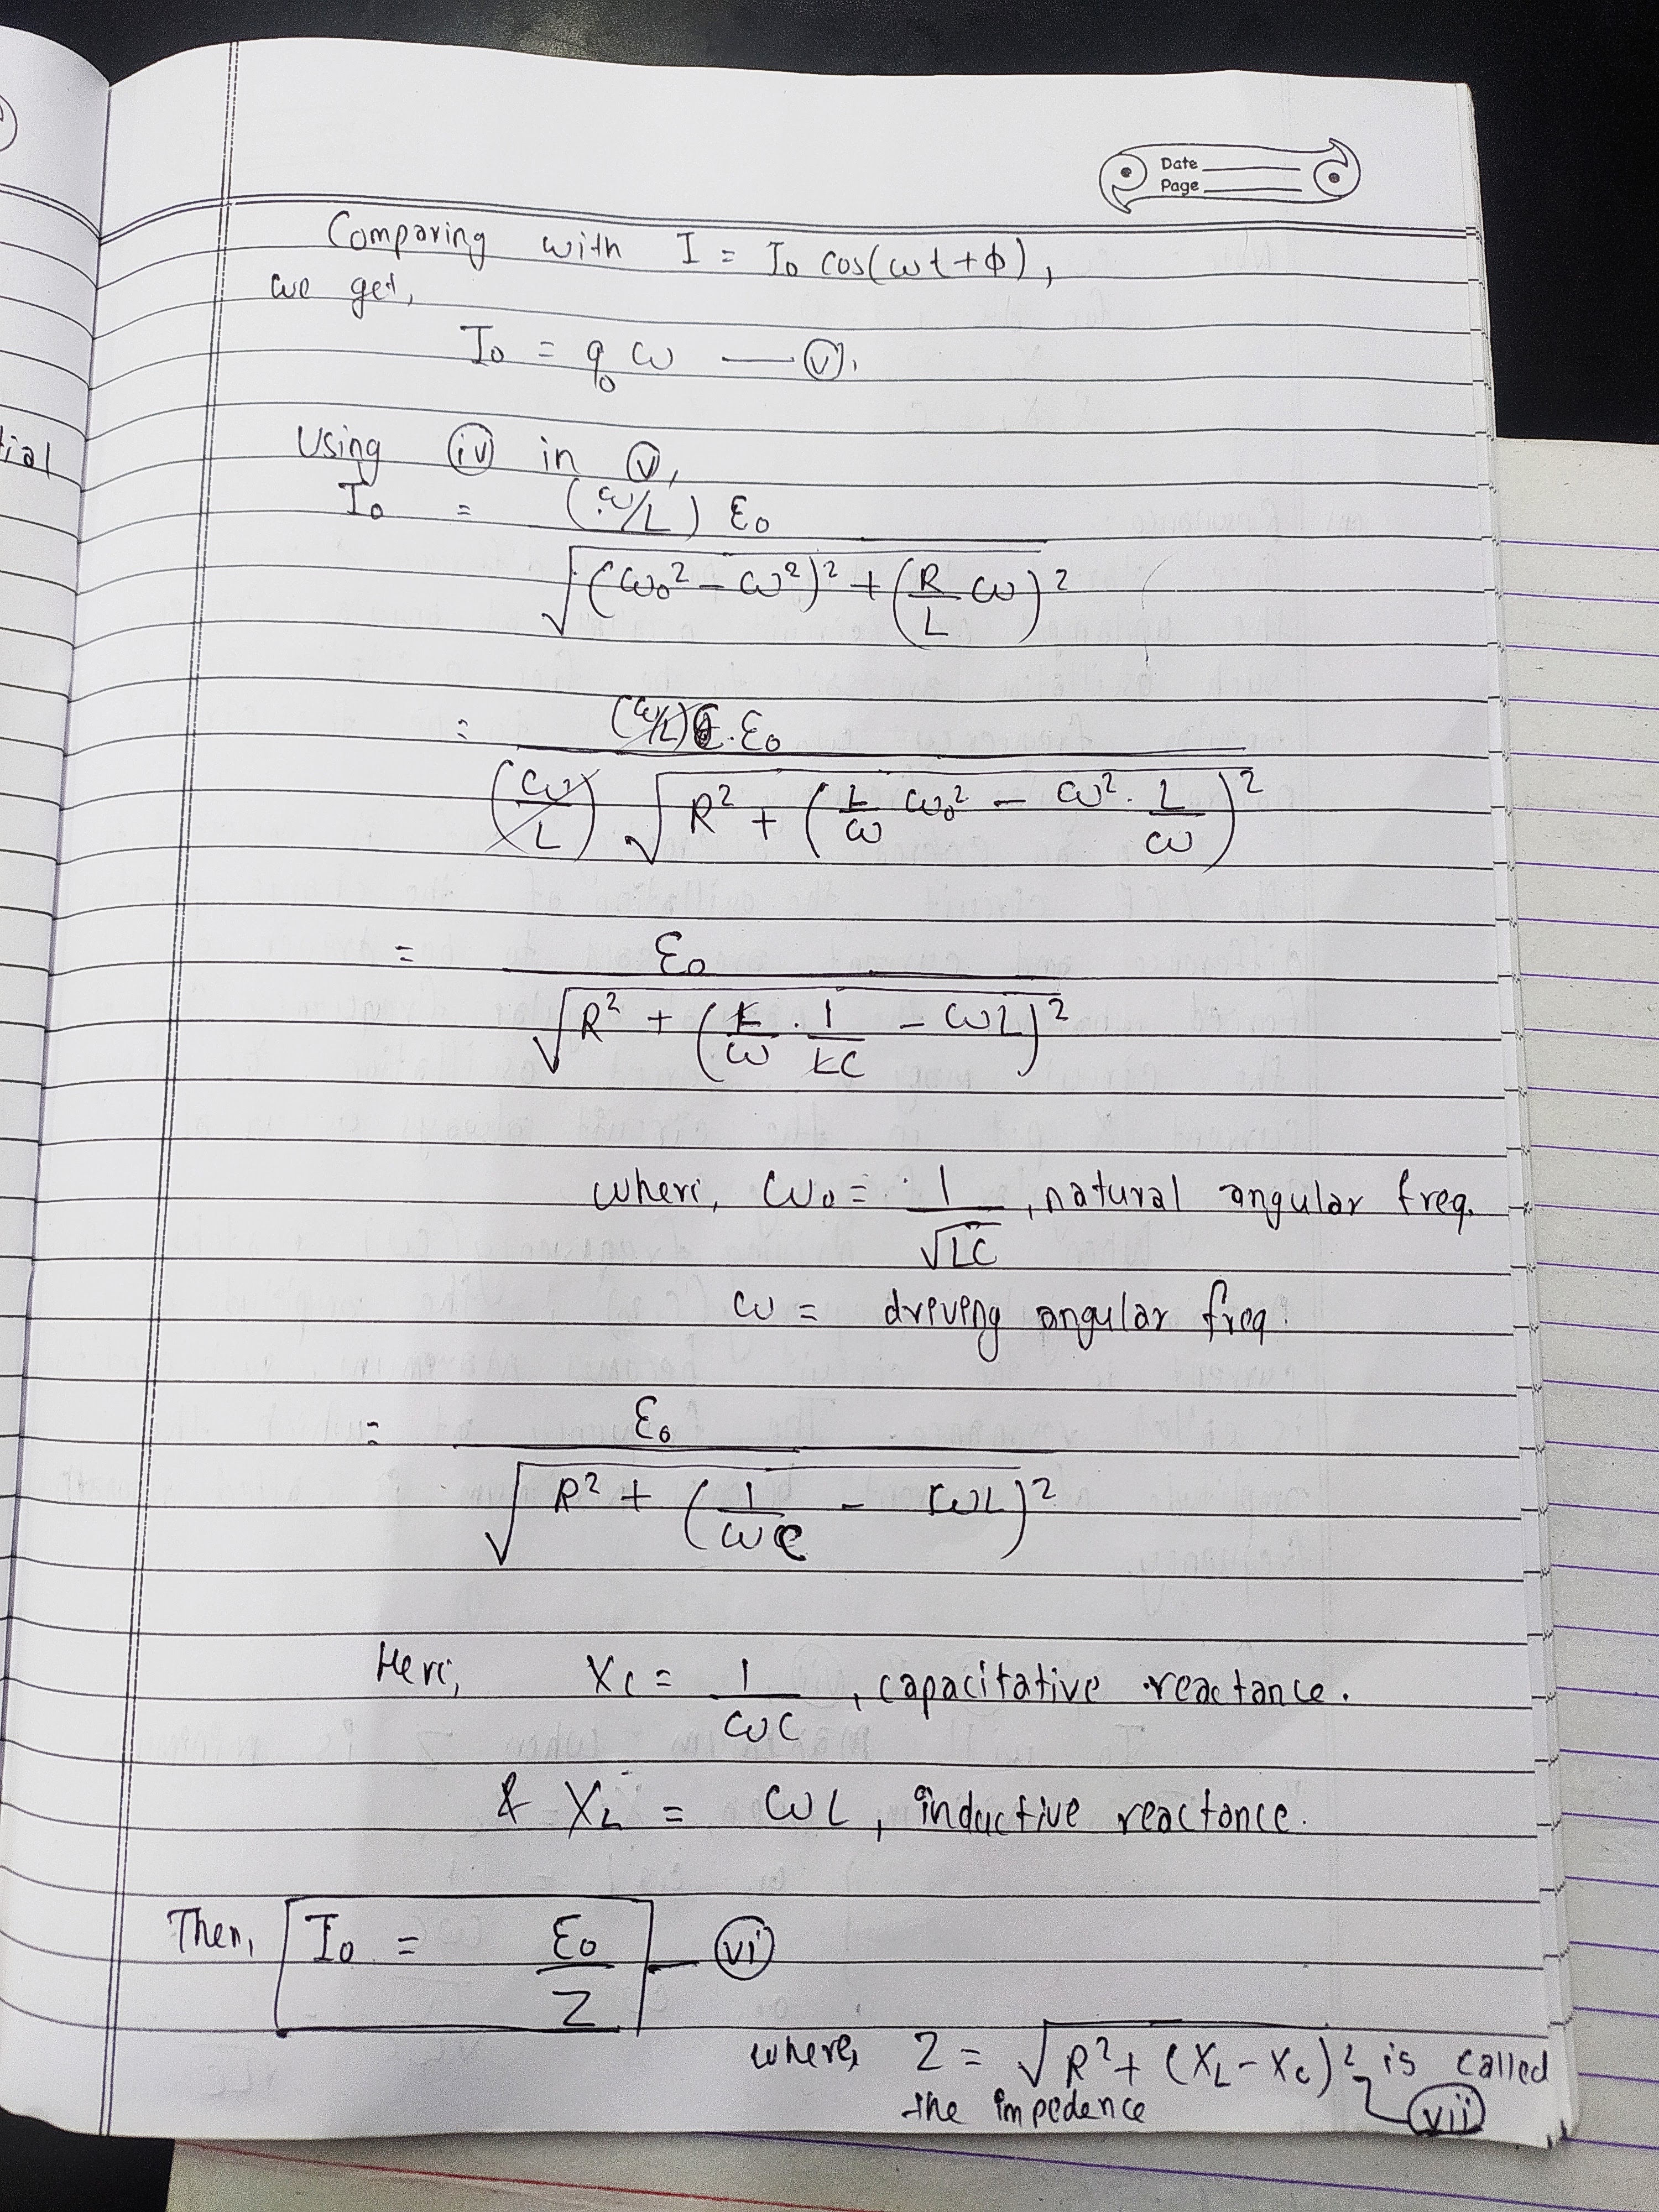 Date
Page
Comparing with I = I₀ cos(ωt+ϕ),
we get,
I₀ = q₀ ω — (v).
tial
Using (iv) in (v),
I₀ = (ω/L) ε₀ / √((ω₀² - ω²)² + (R/L ω)²)
= (ω/L) . ε₀ / (ω/L) √(R² + (L/ω ω₀² - ω² . L/ω)²)
= ε₀ / √(R² + (L/ω . 1/LC - ωL)²)
where, ω₀ = 1/√LC , natural angular freq.
ω = driving angular freq.
= ε₀ / √(R² + (1/ωC - ωL)²)
Here, X_C = 1/ωC , capacitative reactance.
& X_L = ωL, inductive reactance.
Then, I₀ = ε₀/Z — (vi)
where, Z = √(R² + (X_L - X_C)²) is called
the impedence (vii)